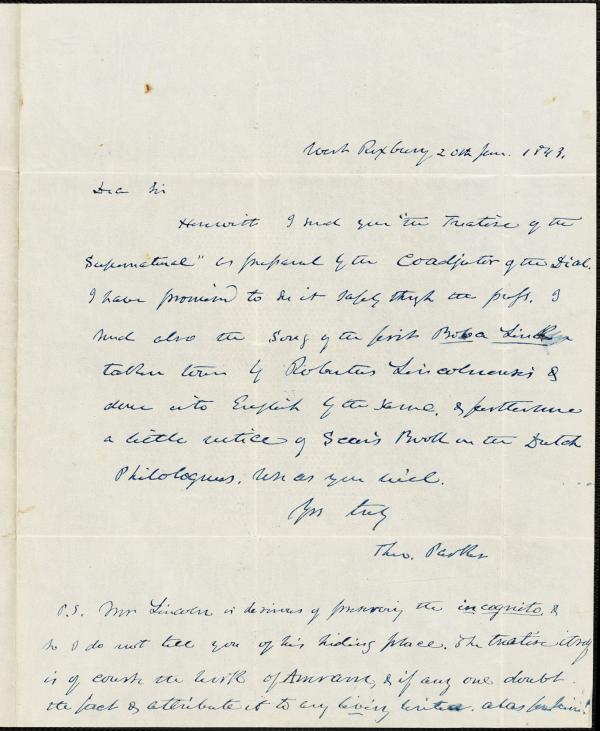 West Roxbury 20th Jan. 1843.
Dear Sir
Herewith I send you "the Treatise of the
Supernatural" as prepared by the Coadjutor of the Dial.
I have promised to see it safely thro'gh the press. I
send also the Song of the first Bob a Lincoln
taken town by Robertus Lincolnensis &
done into English by the same. & furthermore
a little notice of Sears Book on the Dutch
Philologues. Use as you will.
Yrs truly
Theo. Parker
P.S. Mr Lincoln is desirous of preserving the incognito, &
so I do not tell you of his hiding place. The treatise itself
is of course the work of , & if any one doubt
the fact & attribute it to any living writer. alas for him!